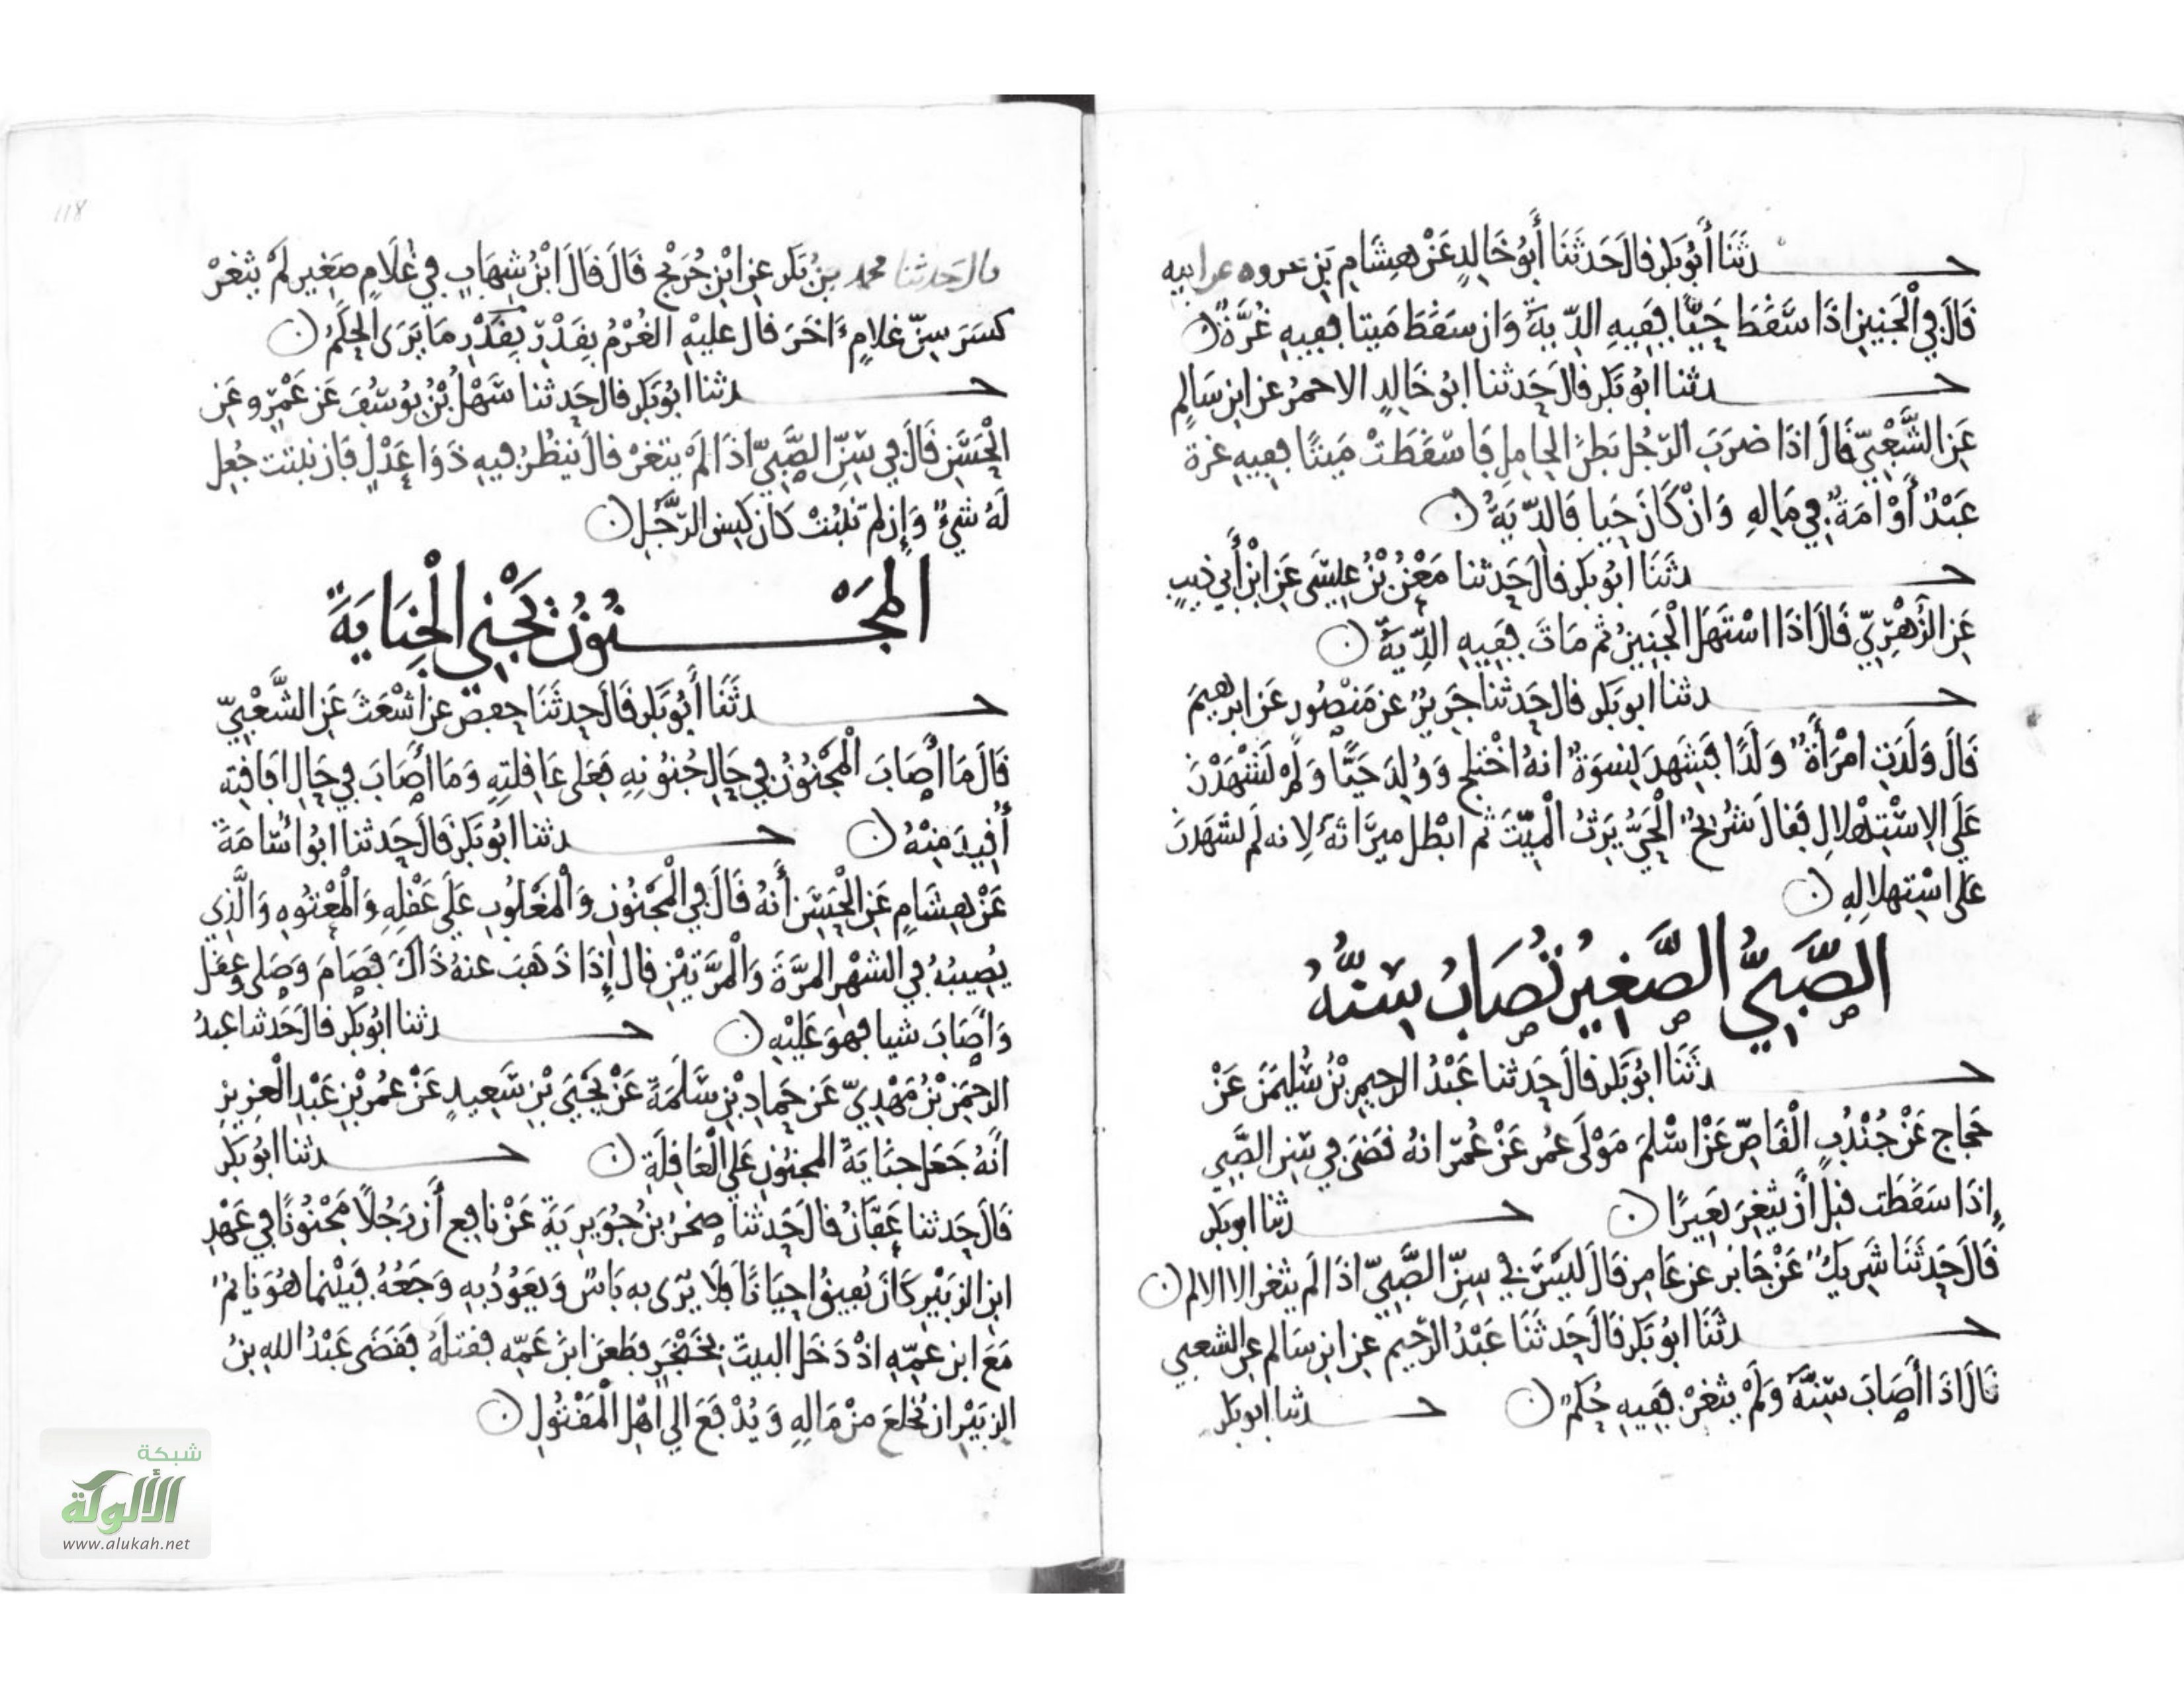 حـــدثَنَا أَبُو بَكرٍ قالَ حَدثَنَا أَبُو خَالِدٍ عَنْ هِشَامِ بْنِ عروه عن ابيه
قَالَ فِي الْجَنِينِ اذَا سَقَطَ حَيًّا فَفِيهِ الدِّيَةُ وَان سَقَطَ مَيتا ففِيهِ غُرَّةٌ
حـــدثنا ابُو بَكرٍ قالَ حَدثنا ابُو خَالِدٍ الاحمرُ عن ابنِ سَالِمٍ
عَنِ الشَّعْبِيِّ قَالَ اذَا ضرَبَ الرّجُل بَطنَ الحامِلِ فَاسْقَطَتْ مَيتًا ففِيهِ غرة
عَبْدٌ أَوْ امَةٌ فِي مَالِهِ وَانْ كَانَ حَيا فَالدِّيَةُ
حـــدثَنَا ابُو بكرٍ قالَ حَدثنا مَعْنُ بْنُ عِيسَى عَنِ ابْنِ أَبِي ذيبٍ
عَنِ الزُّهْرِيِّ قَالَ اذَا اسْتَهَلَ الْجَنِينُ ثم مَاتَ فَفِيهِ الدِّيَةُ
حـــدثنا ابو بَكرٍ قال حَدثنا جَرِيرٌ عن مَنصُورٍ عَن ابرهيمَ
قَالَ وَلَدَتِ امْرَأَةٌ وَلَدًا فَشَهِدَ نِسوَةٌ انهُ اخْتَلَجَ وَوُلِدَ حَيًّا وَلَمْ يَشْهَدْنَ
عَلَى الاِسْتِهْلالِ فَقالَ شُرَيحٌ الْحَيُّ يَرِثُ الْمَيِّتَ ثم ابْطَل مِيرَاثَهُ لِانه لَم يشهَدنَ
عَلى اسْتِهلالِهِ
الصَّبِيُّ الصَّغِيرُ تُصَابُ سِنُّهُ
حـــدثَنَا ابُو بَكرٍ قالَ حَدثنا عَبْدُ الرحيمِ بْنُ سُليمَنَ عَنْ
حَجاجٍ عَنْ جُنْدُبٍ الْقَاصِّ عَنْ اسْلَمَ مَوْلَى عُمرَ عَنْ عُمَرَ انهُ قضَى فِي سِنِ الصَّبِي
إِذَا سَقَطَت قبلَ أَن يثغِرَ بَعِيرًا حـــدثنا ابو بَكر
قَالَ حَدثَنَا شَرِيكٌ عَنْ جَابرٍ عن عَامِرٍ قَالَ لَيْسَ فِي سِنِّ الصَّبِيِّ اذَا لَم يثغر الا الالم
حـــدثَنَا ابُو بَكرٍ قالَ حَدثَنَا عَبْدُ الرّحِيمِ عنِ ابنِ سَالم عن الشعبي
قَالَ اذَا أَصَابَ سِنَّهُ وَلَمْ يثغرْ فَفِيهِ حُكمٌ حـــدثنا ابو بَكر
قال حَدثنا محمد بنُ بَكرٍ عنِ ابْنِ جُرَيْجٍ قَالَ قالَ ابْنُ شِهَابٍ فِي غُلَامٍ صَغِيرٍ لَمْ يثغرْ
كسَرَ سِنَّ غلامٍ ءَاخَرَ قال عليْهِ الغُرْمُ بِقَدْرِ بقَدْرِ مَا يَرَى الحكَمُ
حـــدثنا ابُو بَكرٍ قال حَدثنا سَهْلُ بْنُ يُوسُفَ عَن عَمْرٍو عَنِ
الْحَسَنِ قَالَ فِي سِنِّ الصَّبِيِّ اذَا لَمْ يثغرْ قالَ ينظُرُ فيهِ ذَوَا عَدْلٍ فَان نبتت جُعِلَ
لَهُ شيءٌ وَإِن لم تَنبُتْ كانَ كسِنِ الرَّجُلِ
المَجْـــنُونُ يَجْنِي الْجِنَايَةَ
حـــدثَنَا أَبُو بَكرٍ قَالَ حَدثَنَا حفص عن اشْعَثَ عَنِ الشَّعْبِيِّ
قَالَ مَا أَصَابَ الْمَجْنُونُ فِي حَالِ جُنُونِهِ فَعَلى عَاقِلتِهِ وَمَا أَصَابَ فِي حَالِ افَاقتِه
أُقِيدَ مِنْهُ حـــدثنا ابُو بَكرٍ قَالَ حَدثنا ابُوا سَامَةَ
عَنْ هِشَامٍ عَنِ الْحَسَنِ أَنهُ قَالَ فِي الْمَجْنُونِ وَالْمَغْلُوبِ عَلَى عَقْلِهِ وَالْمَعْتُوهِ وَالَّذِي
يُصِيبُهُ فِي الشهْرِ المَرَّةَ وَالْمَرَّتيْنِ قال إِذَا ذَهَبَ عنهُ ذَاكَ فصَامَ وَصَلى وعقل
وَأَصَابَ شيا فهوَ عَلَيْهِ حـــدثنا ابُو بَكرٍ قالَ حَدثنا عبدُ
الرحمَنِ بْنُ مَهْدِيٍّ عَن حَمادِ بْنِ سَلَمَةَ عَنْ يَحْيَى بْنِ سَعِيدٍ عَنْ عمُرَ بْنِ عَبْدِ الْعزيزِ
انَّهُ جَعَل جنَايَةَ المجنُونِ عَلى الْعَاقِلَةِ حـــدثنا ابُو بَكر
قَالَ حَدثنا عَفَّانُ قالَ حَدثنا صخرُ بنُ جُوَيرِيَةَ عَنْ نافِعٍ أَن رَجُلًا مَجْنُونًا فِي عَهْدِ
ابن الزبَيْرِ كَانَ يُفِيقُ احيَانًا فَلَا يرَى بهِ بَاسٌ وَيَعُودُ بهِ وَجَعُهُ فَبَيْنما هُوَ نايمٌ
مَعَ ابن عمِّهِ اذْ دَخَلَ البيتَ بخَنْجَرٍ فطَعنَ ابنَ عَمِّه فقتلَهُ فقَضَى عَبْدُ اللهِ بنُ
الزبَيْرِ ان يُخلعَ منْ مَالِهِ وَيُدْفَعَ الى اهْلِ الْمَقْتُولِ
118
شبكة
الألوكة
www.alukah.net